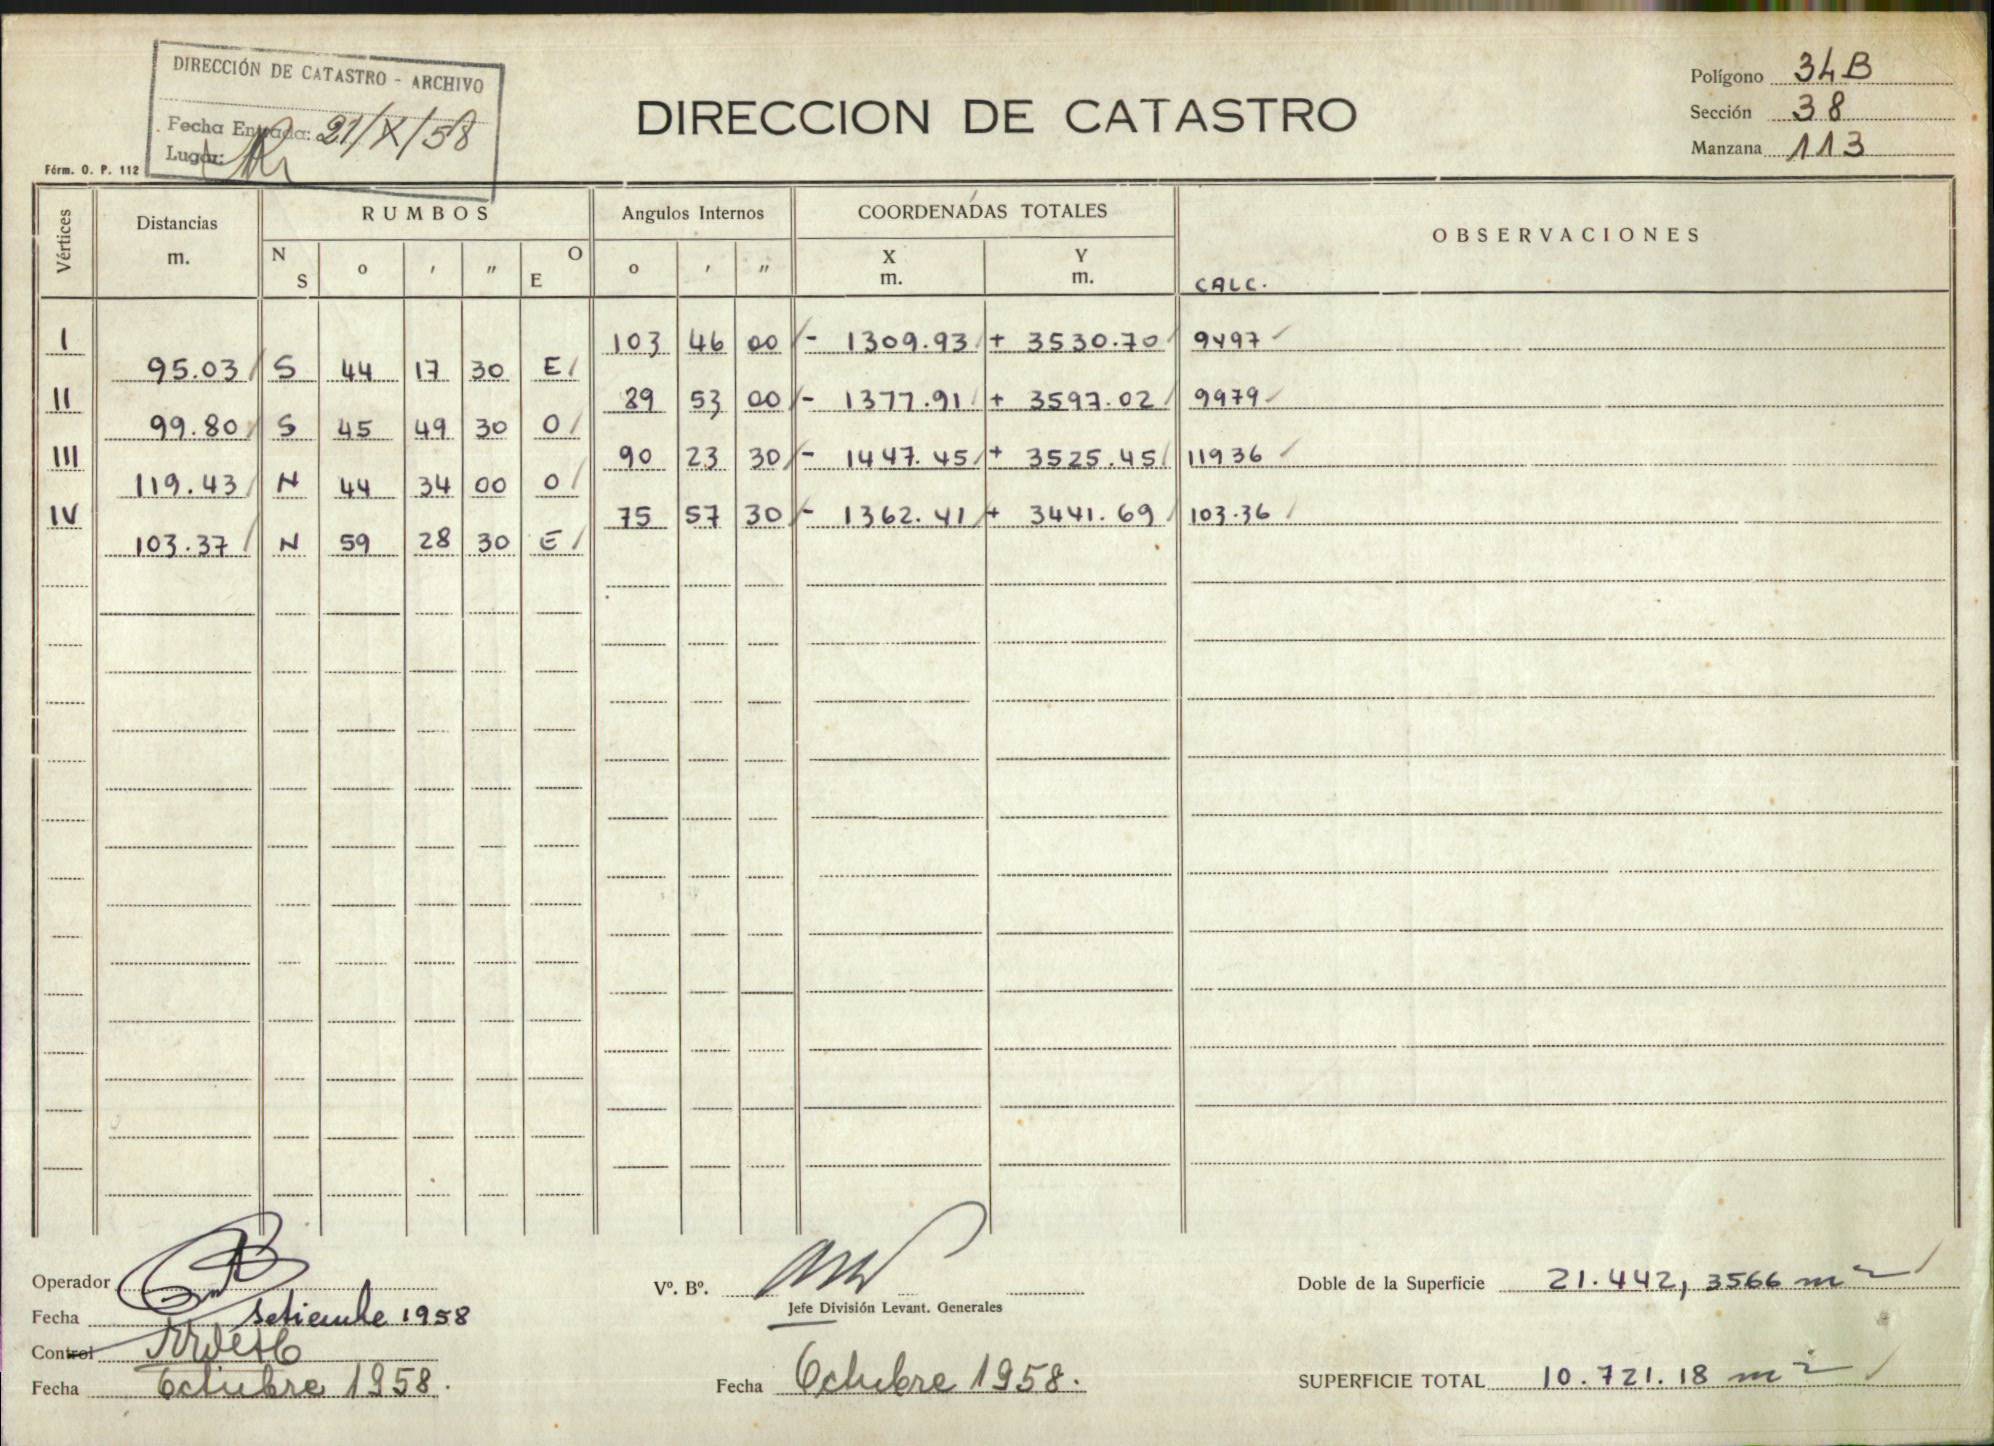 DIRECCIÓN DE CATASTRO - ARCHIVO
Fecha Entrada: 21/X/58
Lugar:
Férm. O. P. 112
DIRECCION DE CATASTRO
Polígono 34B
Sección 38
Manzana 113
Vértices Distancias m. RUMBOS Angulos Internos COORDENADAS TOTALES OBSERVACIONES
N S o ' " O E o ' " X m. Y m. CALC.
I 103 46 00 - 1309.93 + 3530.70 9497
95.03 S 44 17 30 E
II 89 53 00 - 1377.91 + 3597.02 9979
99.80 S 45 49 30 O
III 90 23 30 - 1447.45 + 3525.45 11936
119.43 N 44 34 00 O
IV 75 57 30 - 1362.41 + 3441.69 103.36
103.37 N 59 28 30 E
Operador
Vº. Bº.
Doble de la Superficie 21.442,3566 m2
Jefe División Levant. Generales
Fecha Setiembre 1958
Control
Fecha Octubre 1958.
Fecha Octubre 1958.
SUPERFICIE TOTAL 10.721.18 m2